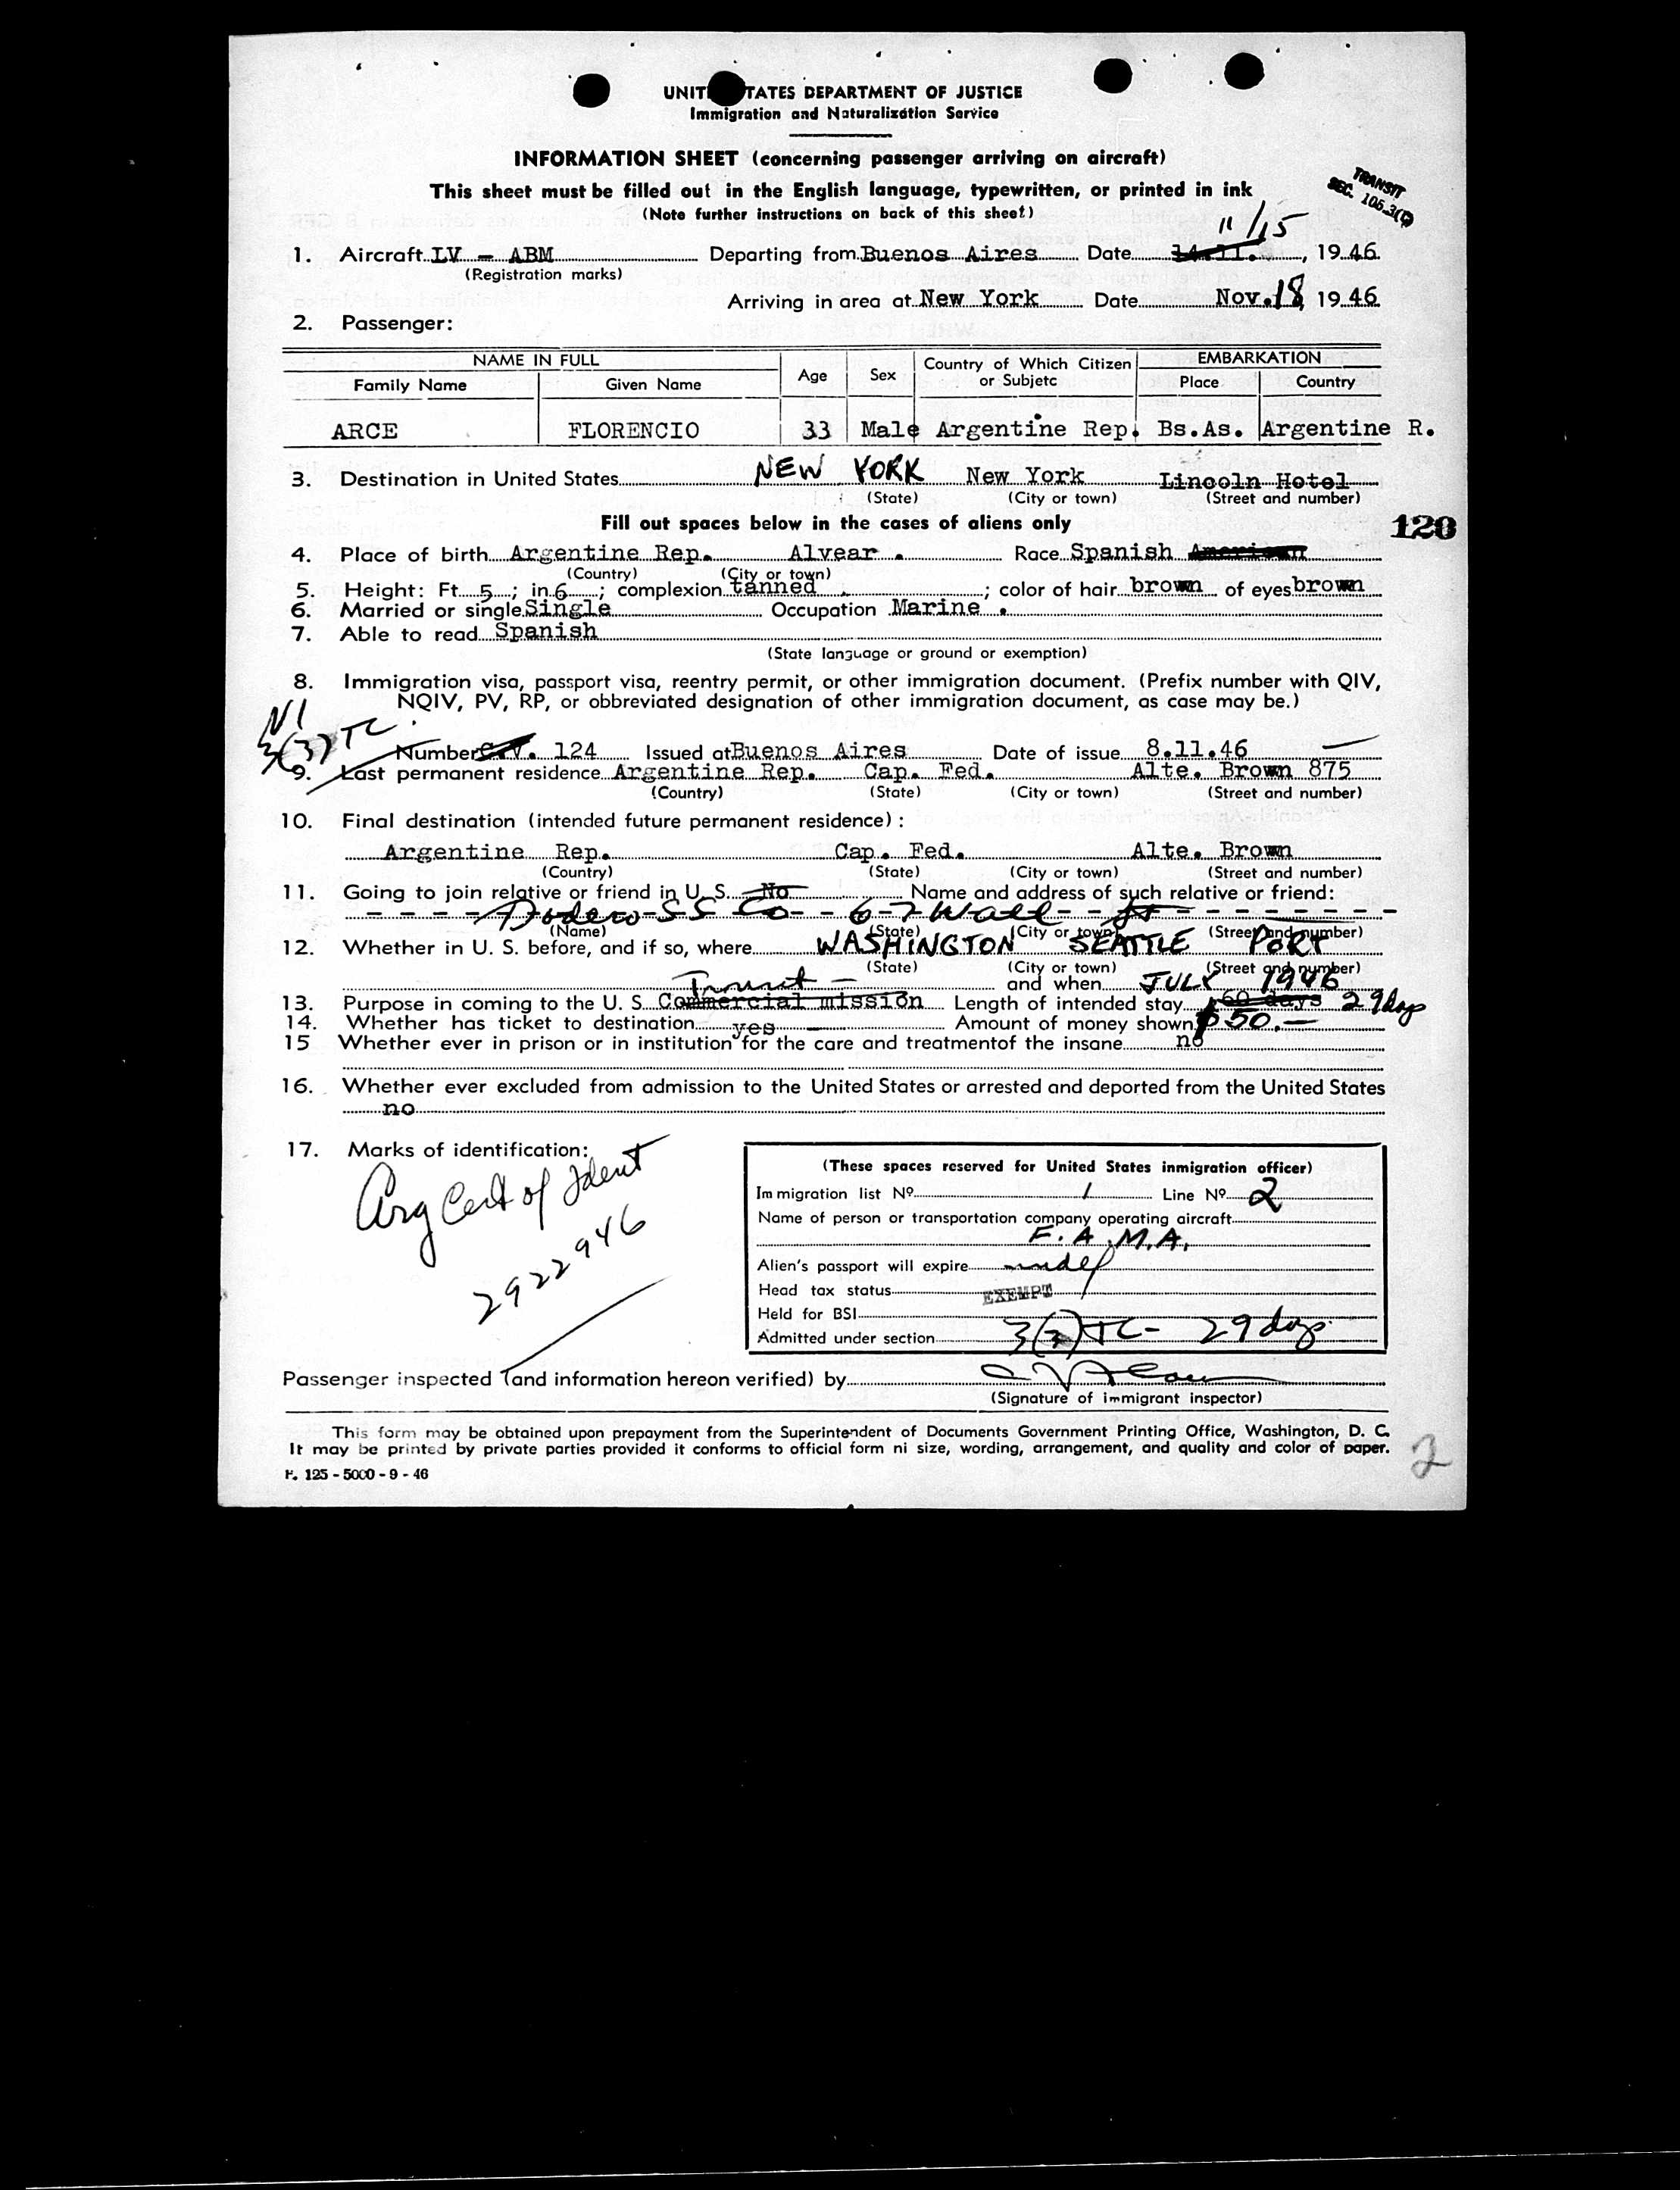 UNIT TATES DEPARTMENT OF JUSTICE
Immigration and Naturalization Service
INFORMATION SHEET (concerning passenger arriving on aircraft)
This sheet must be filled out in the English language, typewritten, or printed in ink
(Note further instructions on back of this sheet)
TRANSIT
SEC. 105.3(
11/15
1. Aircraft LV - ABM Departing from Buenos Aires Date 14.11. , 1946
(Registration marks)
Arriving in area at New York Date Nov. 18, 1946
2. Passenger:
NAME IN FULL Age Sex Country of Which Citizen or Subjetc EMBARKATION
Family Name Given Name Place Country
ARCE FLORENCIO 33 Male Argentine Rep. Bs.As. Argentine R.
3. Destination in United States NEW YORK New York Lincoln Hotel
(State) (City or town) (Street and number)
Fill out spaces below in the cases of aliens only
120
4. Place of birth Argentine Rep. Alvear . Race Spanish American
(Country) (City or town)
5. Height: Ft. 5 ; in. 6 ; complexion tanned ; color of hair brown of eyes brown
6. Married or single Single Occupation Marine .
7. Able to read Spanish
(State language or ground or exemption)
8. Immigration visa, passport visa, reentry permit, or other immigration document. (Prefix number with QIV,
NQIV, PV, RP, or obbreviated designation of other immigration document, as case may be.)
3(3) TC
Number 124 Issued at Buenos Aires Date of issue 8.11.46
9. Last permanent residence Argentine Rep. Cap. Fed. Alte. Brown 875
(Country) (State) (City or town) (Street and number)
10. Final destination (intended future permanent residence) :
Argentine Rep. Cap. Fed. Alte. Brown
(Country) (State) (City or town) (Street and number)
11. Going to join relative or friend in U. S. No Name and address of such relative or friend:
Dodero SS Co 67 Wall St
(Name) (State) (City or town) (Street and number)
12. Whether in U. S. before, and if so, where WASHINGTON SEATTLE PORT
(State) (City or town) (Street and number)
Transit - and when JULY 1946
13. Purpose in coming to the U. S. Commercial mission Length of intended stay 60 days 29 days
14. Whether has ticket to destination yes Amount of money shown $50.-
15 Whether ever in prison or in institution for the care and treatmentof the insane no
16. Whether ever excluded from admission to the United States or arrested and deported from the United States
no
17. Marks of identification:
Arg Cert of Ident
2922946
(These spaces reserved for United States inmigration officer)
Immigration list Nº 1 Line Nº 2
Name of person or transportation company operating aircraft
F.A.M.A.
Alien's passport will expire indef
Head tax status EXEMPT
Held for BSI
Admitted under section 3(3) TC - 29 days
Passenger inspected (and information hereon verified) by
(Signature of immigrant inspector)
This form may be obtained upon prepayment from the Superintendent of Documents Government Printing Office, Washington, D. C.
It may be printed by private parties provided it conforms to official form ni size, wording, arrangement, and quality and color of paper.
F. 125 - 5000 - 9 - 46
2